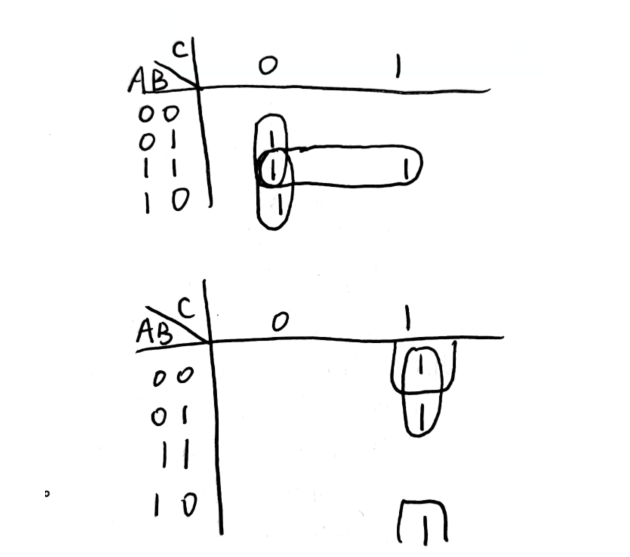 C
AB 0 1
00
01 1
11 1 1
10 1
C
AB 0 1
00 1
01 1
11
10 1